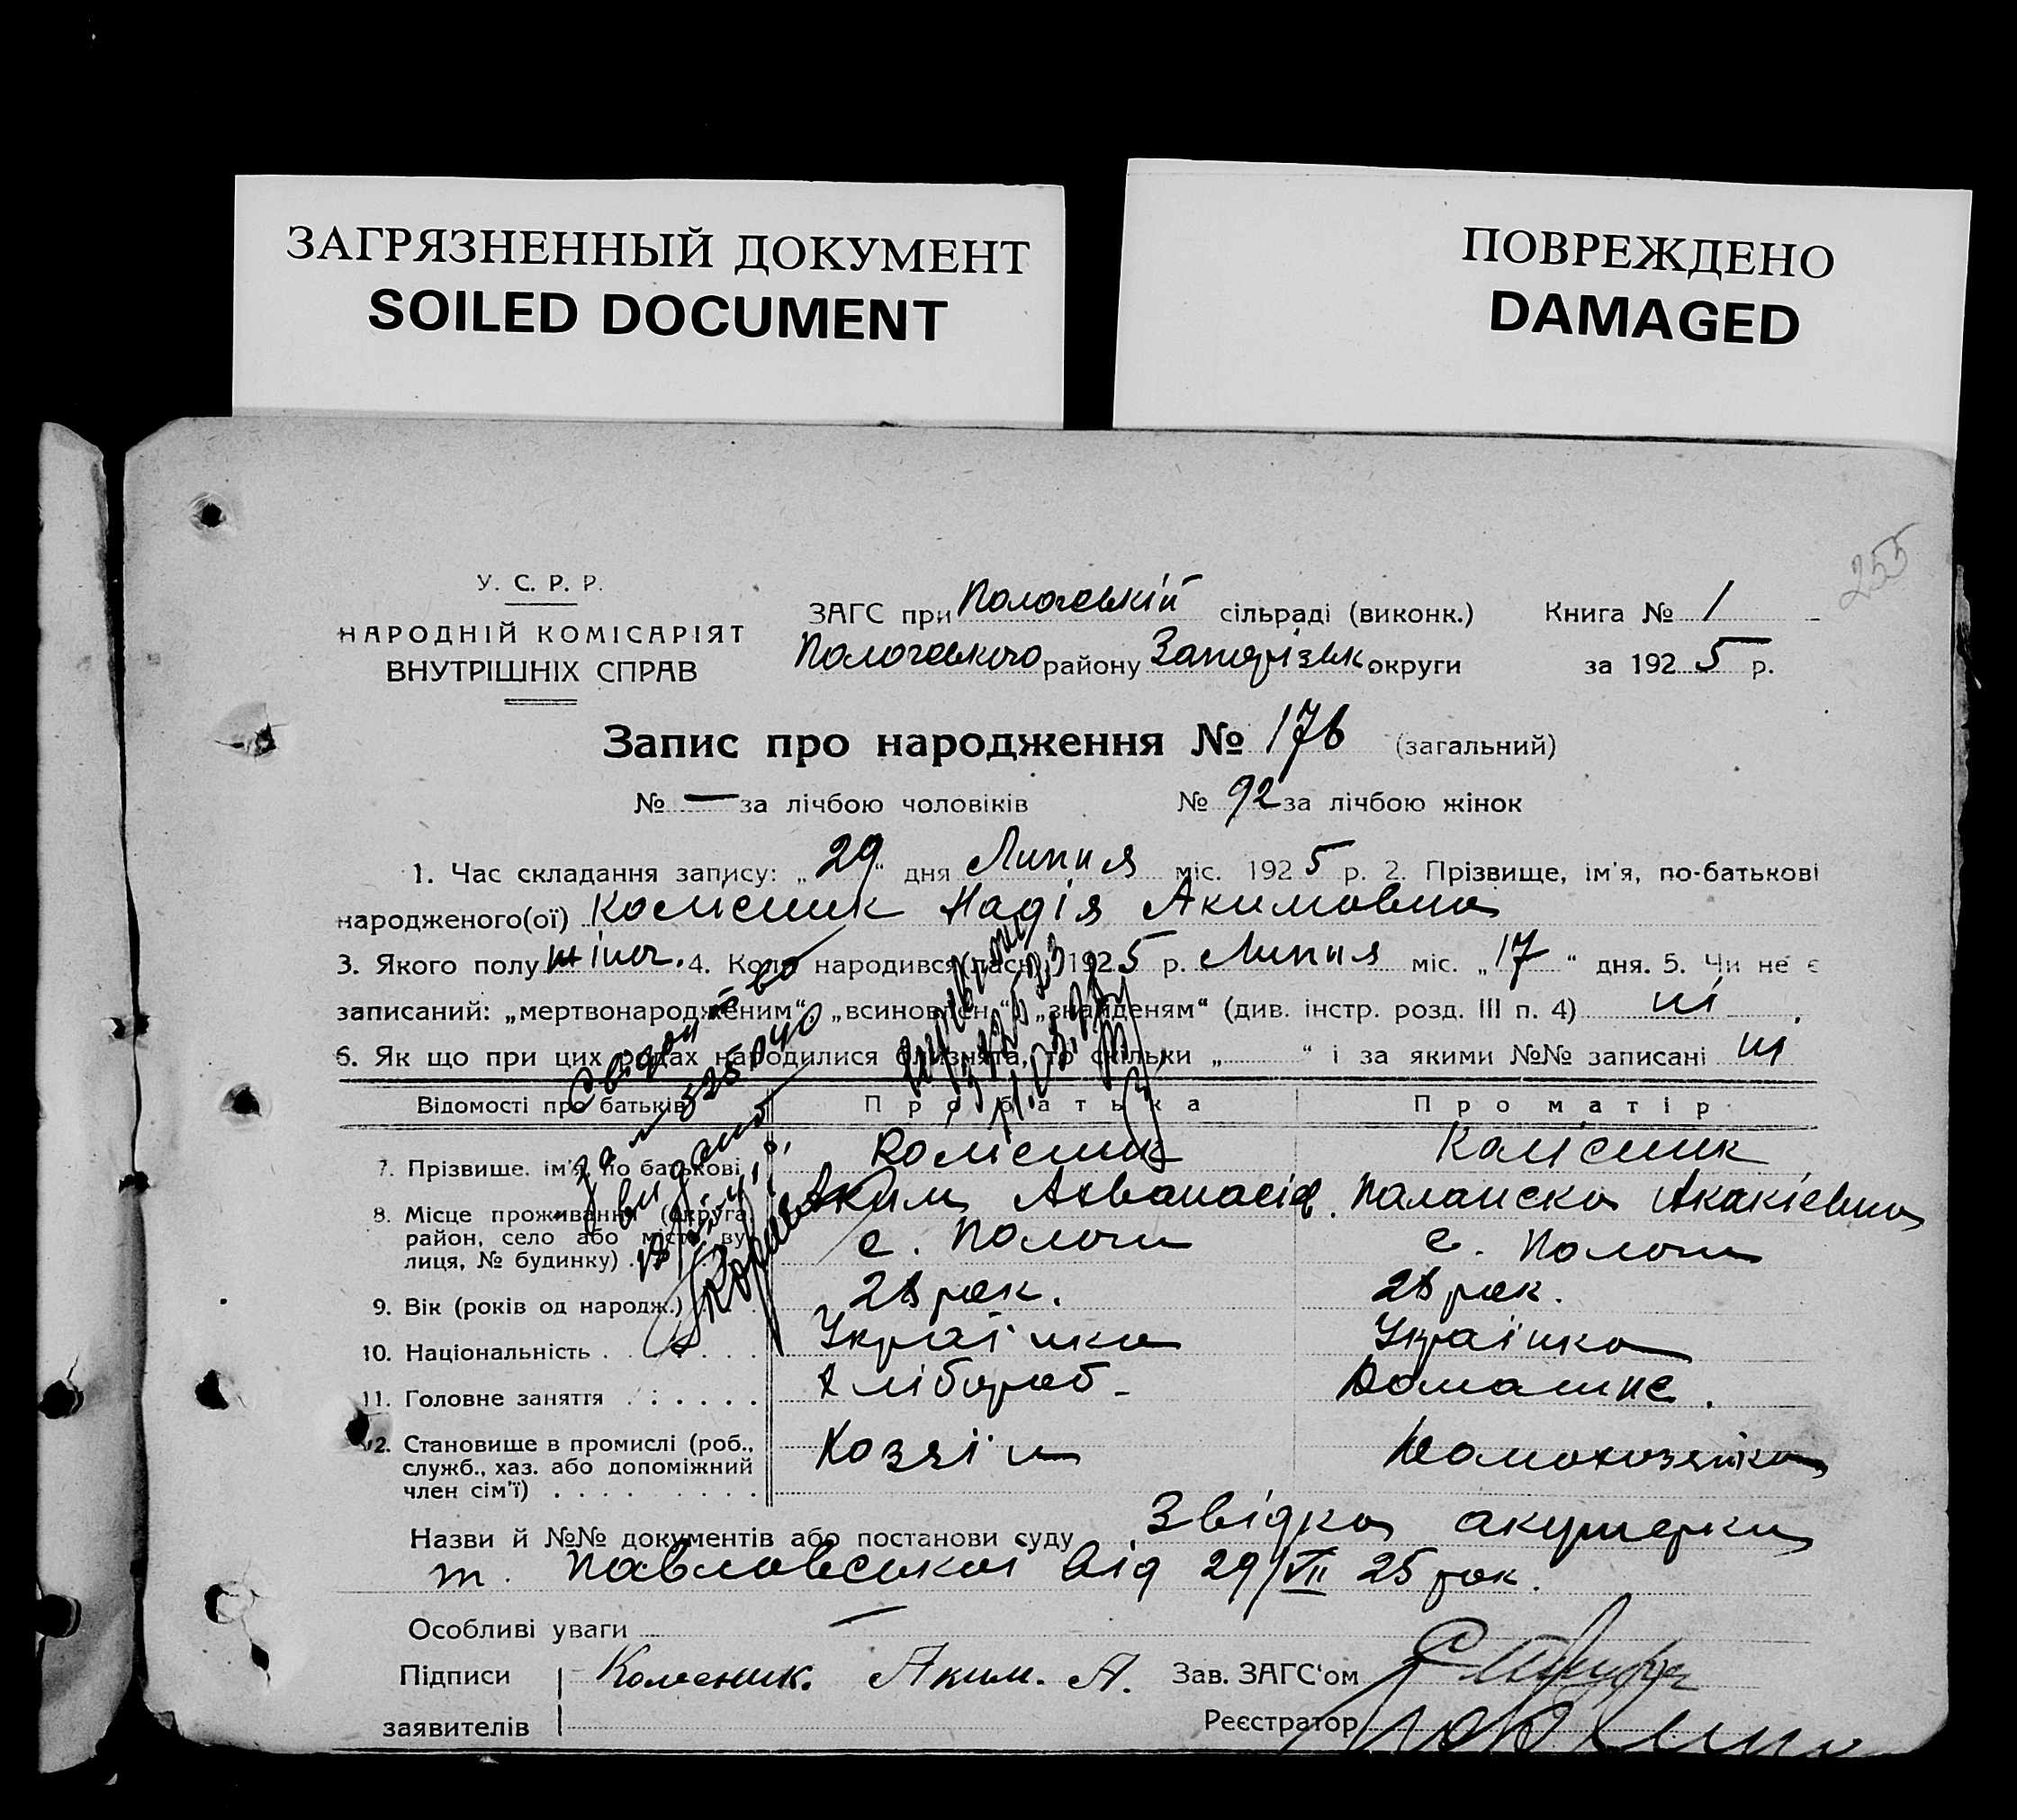 ЗАГРЯЗНЕННЫЙ ДОКУМЕНТ
SOILED DOCUMENT
ПОВРЕЖДЕНО
DAMAGED
255
У. С. Р. Р.
НАРОДНІЙ КОМІСАРІЯТ
ВНУТРІШНІХ СПРАВ
ЗАГС при Пологській сільраді (виконк.) Книга № 1
Пологського району Запорізьк округи за 1925 р.
Запис про народження № 176 (загальний)
№ — за лічбою чоловіків № 92 за лічбою жінок
1. Час складання запису: „29“ дня Липня міс. 1925 р. 2. Прізвище, ім'я, по-батькові
народженого(ої) Колісник Надія Акимовна
3. Якого полу жіноч. 4. Коли народився 1925 р. Липня міс. „17“ дня. 5. Чи не є
записаний: „мертвонародженим“ „всиновлен.“ „знайденям“ (див. інстр. розд. III п. 4) ні
6. Як що при цих родах народилися близнята, то скільки „ “ і за якими №№ записані ні
Відомості про батьків Про батька Про матір
7. Прізвище. ім'я, по батькові Колісник Колісник
Аким Афанасіев. Паланска Акакіевна
8. Місце проживання (округа
район, село або місто, ву
лиця, № будинку) с. Пологи с. Пологи
9. Вік (років од народж.) 28 рок. 28 рок.
10. Національність Українка Українка
11. Головне заняття Хлібороб- Домашнє.
12. Становище в промислі (роб.,
служб., хаз. або допоміжний
член сім'ї) Хоззяін Домохозяйка
Назви й №№ документів або постанови суду Звідка акушерки
т. Павловської від 29/VII 25 рок.
Особливі уваги —
Підписи Колесник. Аким. А. Зав. ЗАГС'ом
заявителів Реєстратор